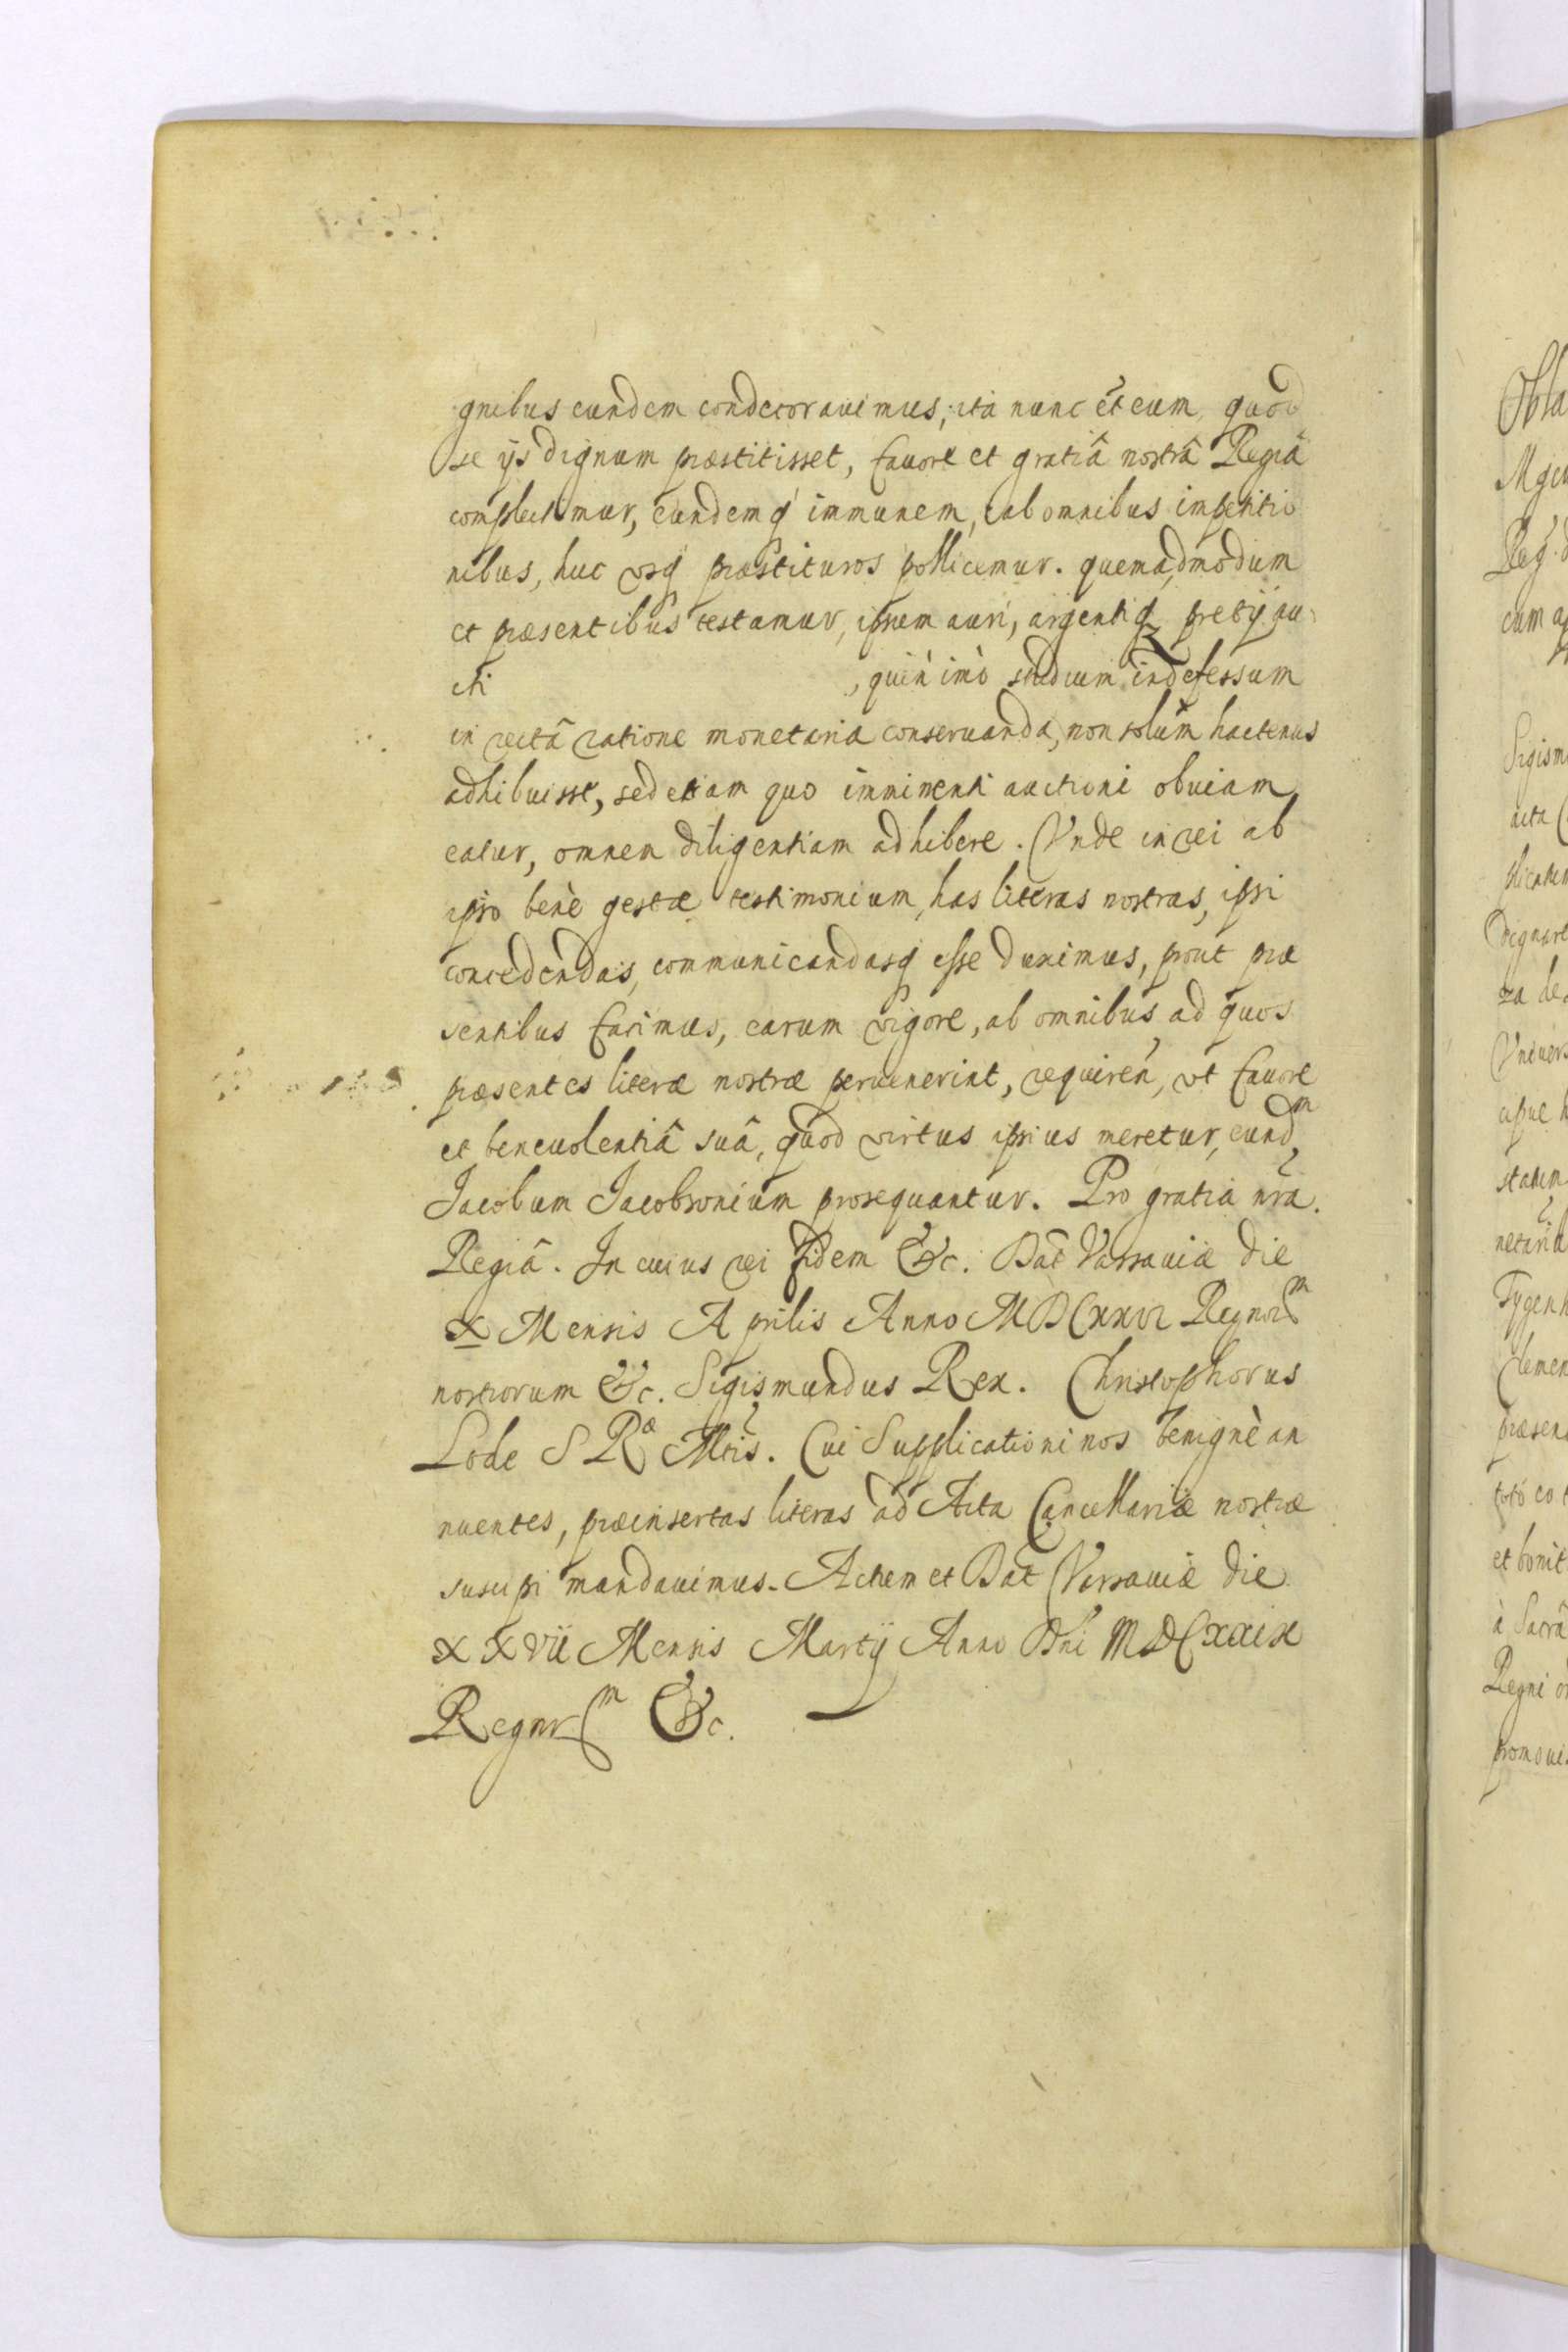 gnibus eundem condecorauimus, ita nunc et eum quod
se ijs dignum præstitisset, fauore et gratiâ nostrâ Regiâ
complectimur, eundemq́ immunem, ab omnibus impetitio
nibus, huc vsq́ præstituros pollicemur. quemadmodum
et præsentibus testamur, ipsum auri, argentiq pretij au
cti
, quin imò studium indefessum
in rectâ ratione monetaria conseruanda, non solum hactenus
adhibuisse, sed etiam quo imminenti auctioni obuiam
eatur, omnem diligentiam adhibere. Vnde in rei ab
ipso benè gestæ testimonium, has literas nostras, ipsi
concedendas, communicandasq́ esse duximus, prout præ
sentibus facimus, earum vigore, ab omnibus, ad quos
præsentes literæ nostræ peruenerint, requiren, vt fauore
et beneuolentiâ suâ, quod virtus ipsius meretur, eundm
Jacobum Jacobsonium prosequantur. Pro gratia nra
Regiâ. In cuius rei fidem &c. Dat Varsauiæ die
X Mensis Aprilis Anno MDCXXVI Regnorm
nostrorum &c. Sigismundus Rex. Christophorus
Lode S Ræ Mtis. Cui Supplicationi nos benignè an
nuentes, præinsertas literas ad Acta Cancellariæ nostræ
suscipi mandauimus. Actum et Dat Varsauiæ die
XXVII Mensis Martij Anno Dni MDCXXIX
Regnrm &c.
Obla
Reg. d
cum a
Sigism
acta
plicatum
dignare
Vniuers
statum
netaria
Tygenh
Clemen
præsen
toto eo
et bonit
à Sacrâ
Regni o
promoue